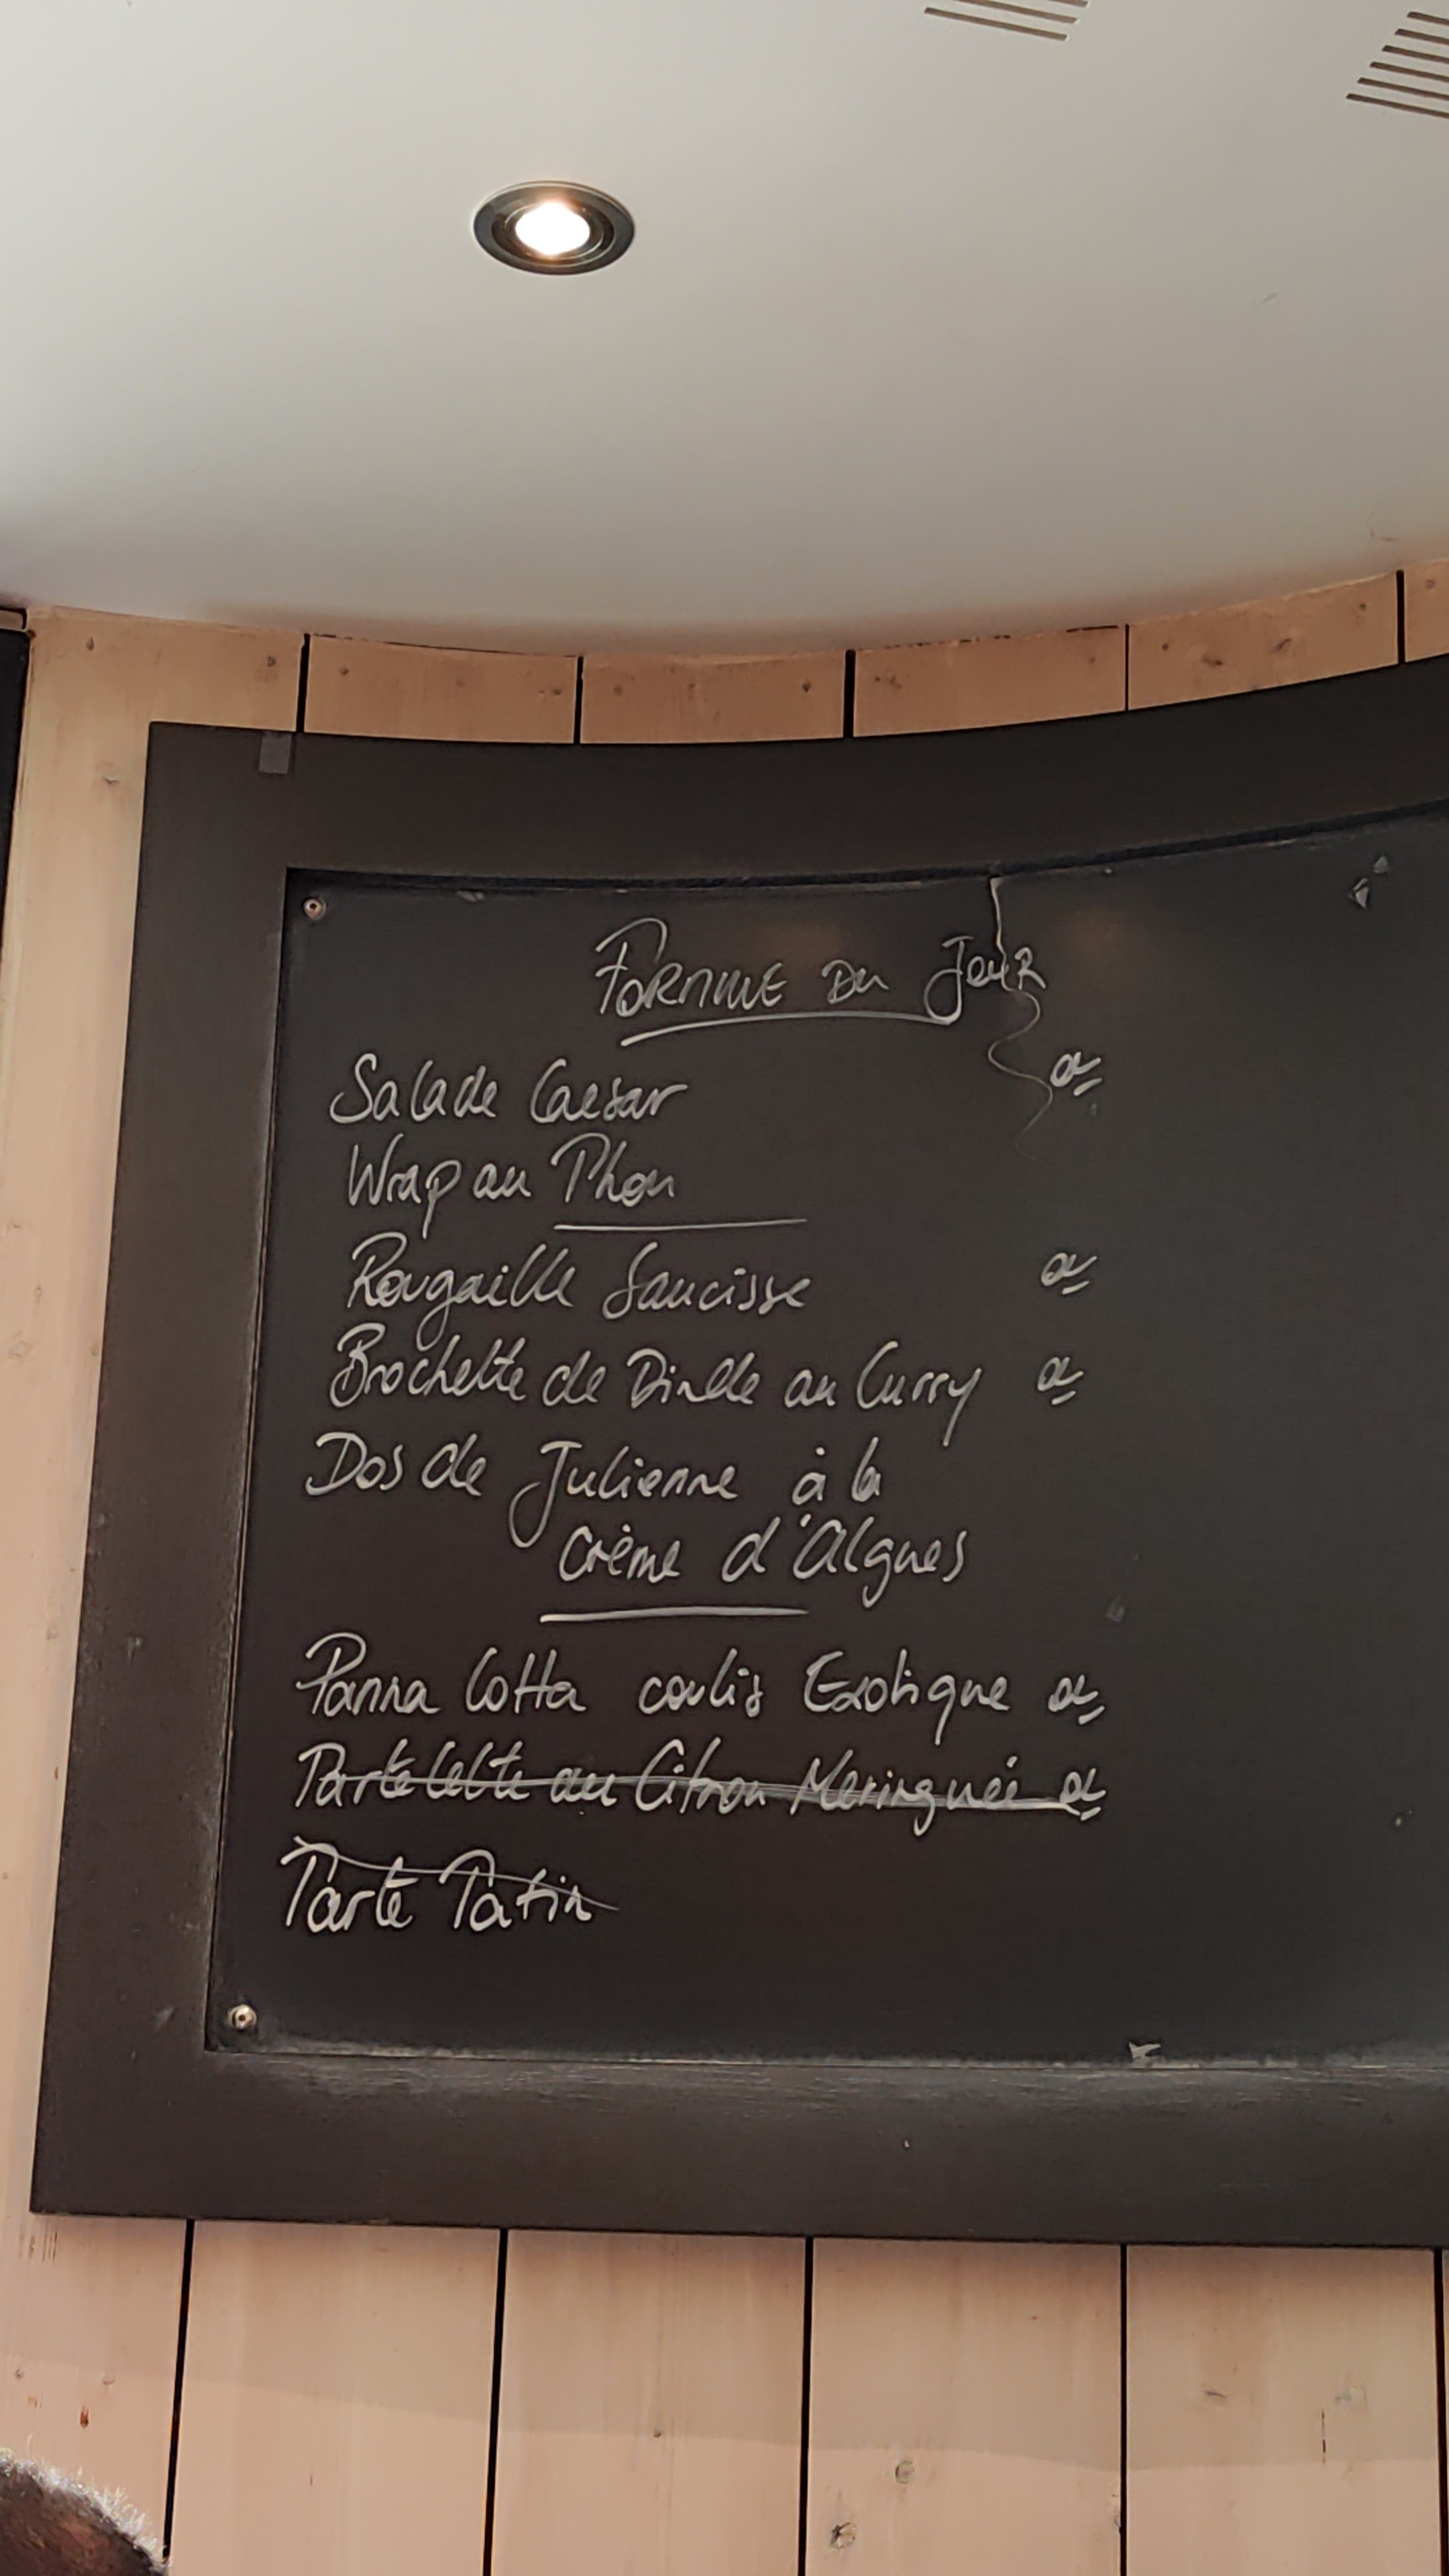 FORMULE DU JOUR
Salade Caesar
Wrap au Thon
Rougaille Saucisse
Brochette de Dinde au Curry
Dos de Julienne à la
crème d'Algues
Panna Cotta coulis Exotique
Tartelette au Citron Meringuée
Tarte Tatin